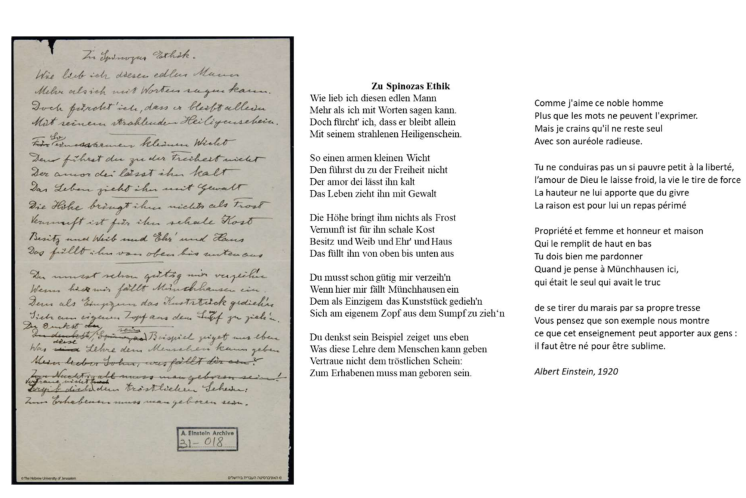 Zu Spinozas Ethik.
Wie lieb ich diesen edlen Mann
Mehr als ich mit Worten sagen kann.
Doch fürcht' ich, dass er bleibt allein
Mit seinem strahlenden Heiligenschein.
So armen kleinen Wicht
Den führst du zu der Freiheit nicht
Der amor dei lässt ihn kalt
Das Leben zieht ihn mit Gewalt
Die Höhe bringt ihm nichts als Frost
Vernunft ist für ihn schale Kost
Besitz und Weib und Ehr' und Haus
Das füllt ihn von oben bis unten aus
Du musst schon gütig mir verzeihn
Wenn hier mir fällt Münchhausen ein
Dem als Einzigem das Kunststück gediehn
Sich am eigenen Zopf aus dem Sumpf zu zieh'n
Du denkst sein Beispiel zeiget uns eben
Was diese Lehre dem Menschen kann geben
Mein lieber Sohn, was fällt dir ein?
Zur Nachtigall muss man geboren sein!
Vertraue nicht dem tröstlichen Schein:
Zum Erhabenen muss man geboren sein.
A. Einstein Archive
31-018
©The Hebrew University of Jerusalem
Zu Spinozas Ethik
Wie lieb ich diesen edlen Mann
Mehr als ich mit Worten sagen kann.
Doch fürcht' ich, dass er bleibt allein
Mit seinem strahlenen Heiligenschein.
So einen armen kleinen Wicht
Den führst du zu der Freiheit nicht
Der amor dei lässt ihn kalt
Das Leben zieht ihn mit Gewalt
Die Höhe bringt ihm nichts als Frost
Vernunft ist für ihn schale Kost
Besitz und Weib und Ehr' und Haus
Das füllt ihn von oben bis unten aus
Du musst schon gütig mir verzeih'n
Wenn hier mir fällt Münchhausen ein
Dem als Einzigem das Kunststück gedieh'n
Sich am eigenem Zopf aus dem Sumpf zu zieh'n
Du denkst sein Beispiel zeiget uns eben
Was diese Lehre dem Menschen kann geben
Vertraue nicht dem tröstlichen Schein:
Zum Erhabenen muss man geboren sein.
Comme j'aime ce noble homme
Plus que les mots ne peuvent l'exprimer.
Mais je crains qu'il ne reste seul
Avec son auréole radieuse.
Tu ne conduiras pas un si pauvre petit à la liberté,
l'amour de Dieu le laisse froid, la vie le tire de force
La hauteur ne lui apporte que du givre
La raison est pour lui un repas périmé
Propriété et femme et honneur et maison
Qui le remplit de haut en bas
Tu dois bien me pardonner
Quand je pense à Münchhausen ici,
qui était le seul qui avait le truc
de se tirer du marais par sa propre tresse
Vous pensez que son exemple nous montre
ce que cet enseignement peut apporter aux gens :
il faut être né pour être sublime.
Albert Einstein, 1920